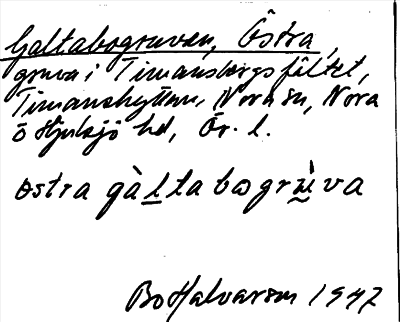 Galtabogruvan, Östra,
gruva i Timansbergsfältet,
Timanshyttan, Nora sn, Nora
o Hjulsjö hd, Ör. l.
östra gàltabogrùva
Bo Halvarson 1947